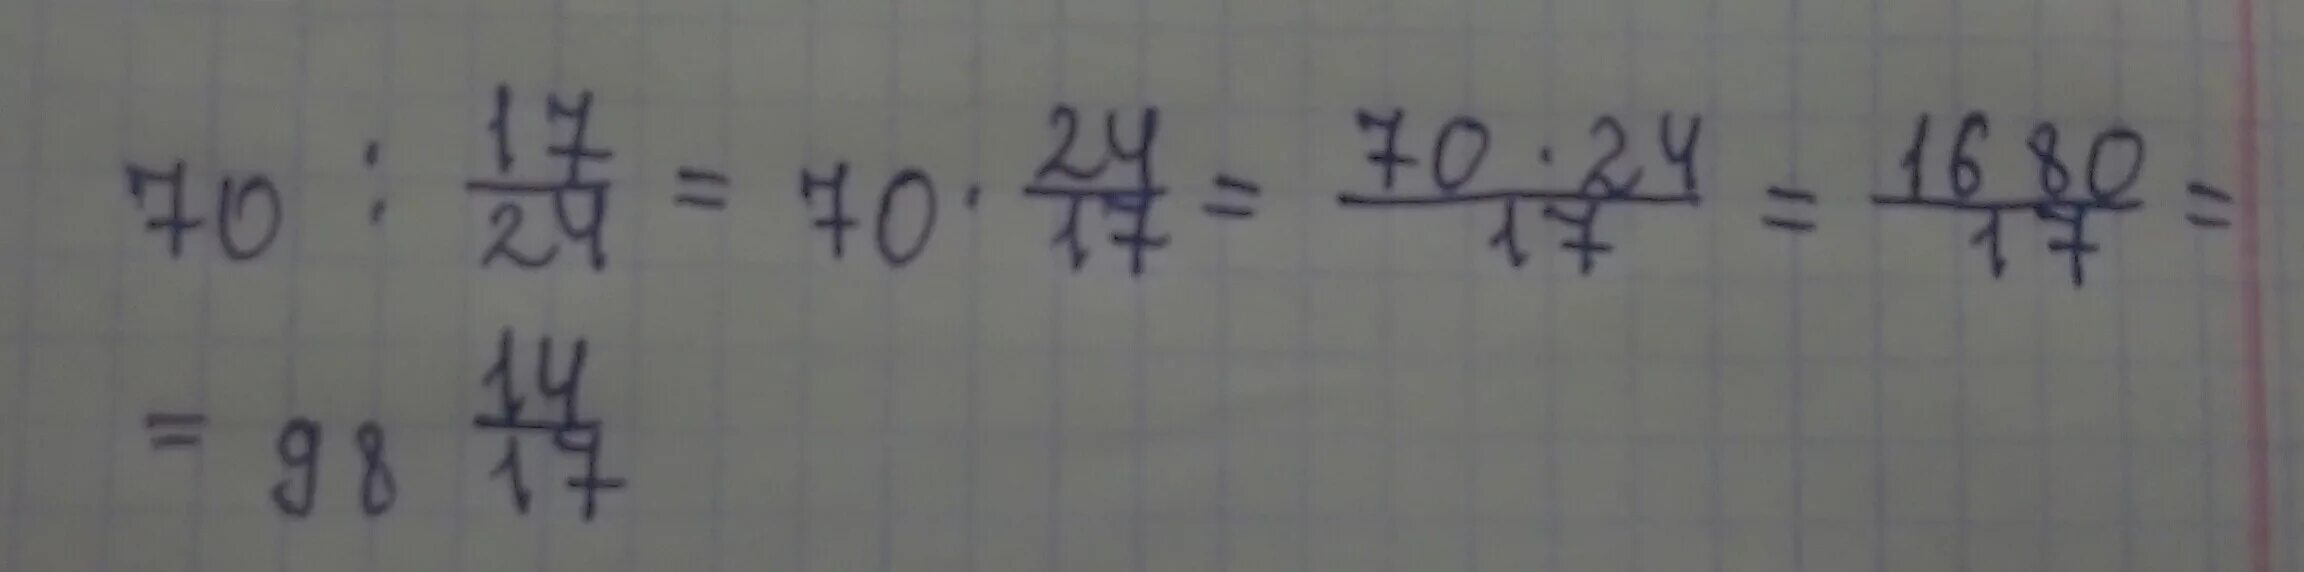 70 : 17/24 = 70 · 24/17 = 70 · 24/17 = 1680/17 =
= 98 14/17